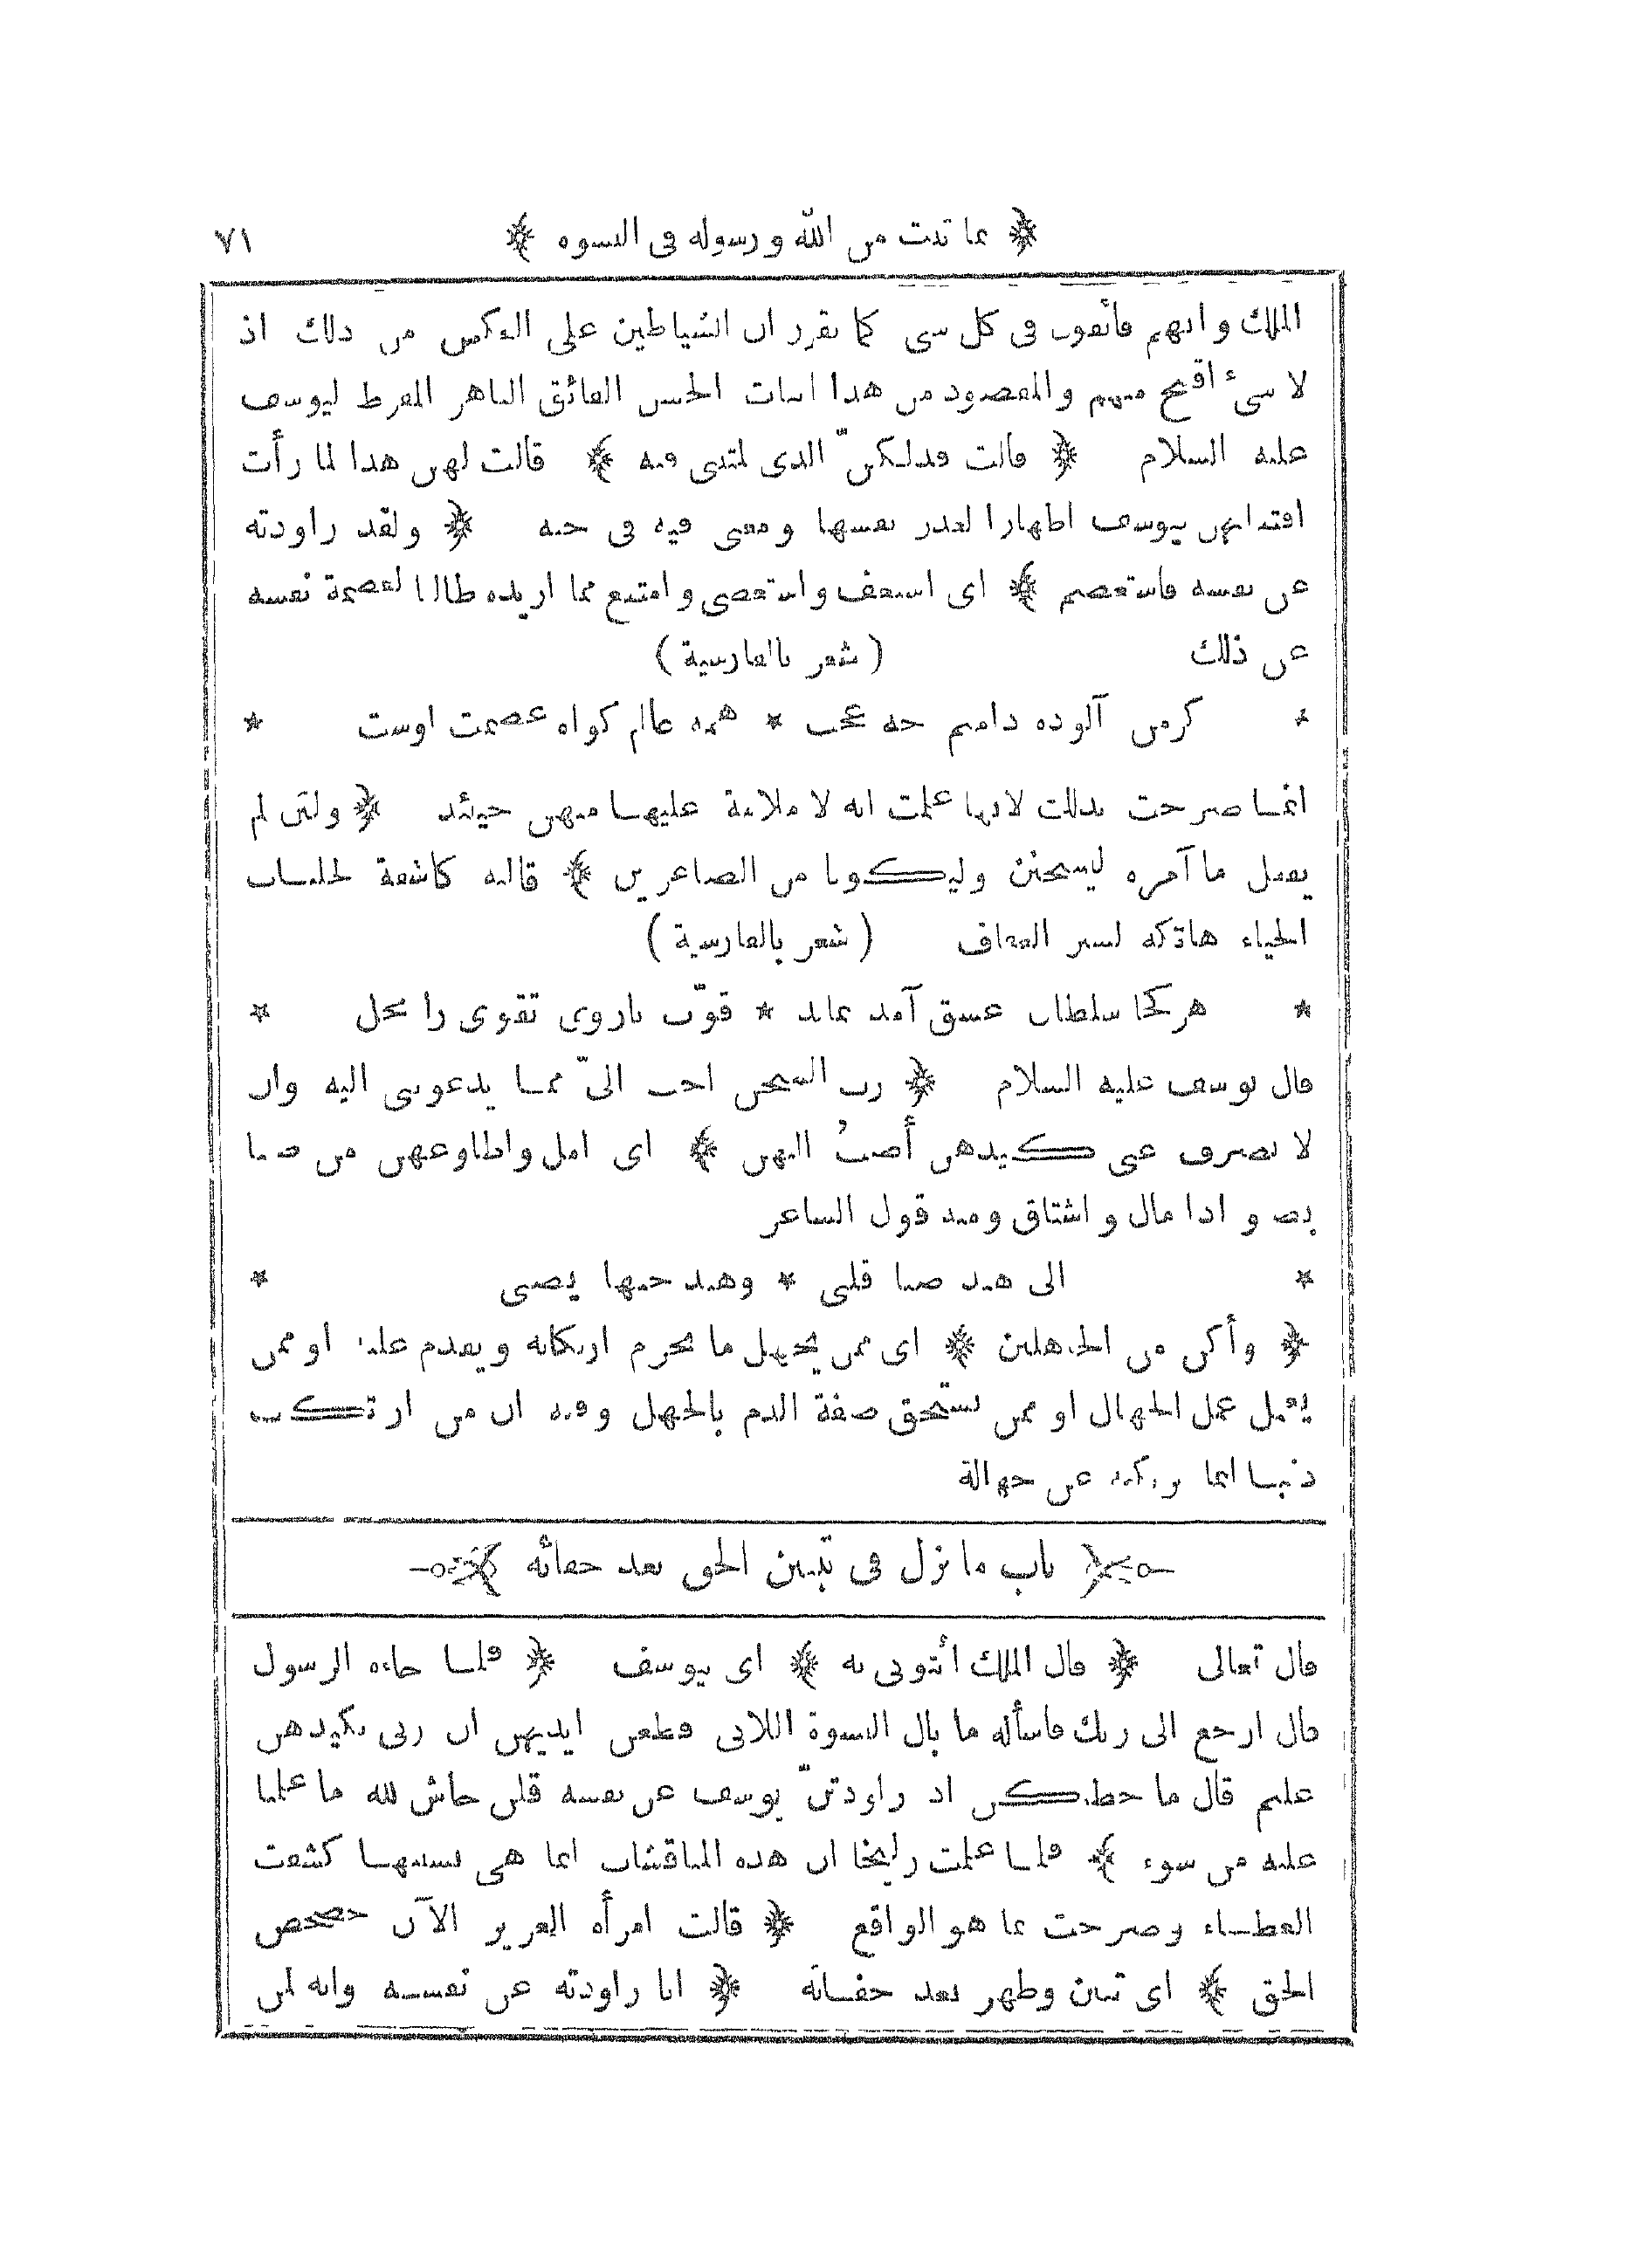 ﴿ بما ثبت من الله ورسوله فى النسوه ﴾ ٧١
الملك وانهم فائقون فى كل شئ كما تقرر ان الشياطين على العكس من ذلك اذ
لا شئ اقبح منهم والمقصود من هذا اثبات الحسن الفائق الباهر المفرط ليوسف
عليه السلام ﴿ قالت فذلكنّ الذى لمتننى فيه ﴾ قالت لهن هذا لما رأت
افتتانهن بيوسف اظهارا لعذر نفسها ومعنى فيه فى حبه ﴿ ولقد راودته
عن نفسه فاستعصم ﴾ اى استعف واستعصى وامتنع مما اريده طالبا لعصمة نفسه
عن ذلك (شعر بالفارسية)
* كرمن آلوده دامنم چه عجب * همه عالم كواه عصمت اوست *
انما صرحت بذلك لانها علمت انه لا ملامة عليها منهن حينئذ ﴿ ولئن لم
يفعل ما آمره ليسجنن وليكونا من الصاغرين ﴾ قالته كاشفة لجلباب
الحياء هاتكه لستر العفاف (شعر بالفارسية)
* هر كجا سلطان عشق آمد نماند * قوّت بازوى تقوى را محل *
قال يوسف عليه السلام ﴿ رب السجن احب الىّ مما يدعوننى اليه وان
لا تصرف عنى كيدهن أصبُ اليهن ﴾ اى امل واطاوعهن من صبا
يصبو اذا مال واشتاق ومنه قول الشاعر
* الى هند صبا قلبى * وهند حبها يصبى *
﴿ وأكن من الجاهلين ﴾ اى ممن يجهل ما يحرم ارتكابه ويقدم عليه او ممن
يعمل عمل الجهال او ممن يستحق صفة الذم بالجهل وفيه ان من ارتكب
ذنبا انما يرتكبه عن جهالة
﴿ باب ما نزل فى تبيين الحق بعد خفائه ﴾
قال تعالى ﴿ قال الملك أئتونى به ﴾ اى بيوسف ﴿ فلما جاءه الرسول
قال ارجع الى ربك فاسأله ما بال النسوة اللاتى قطعن ايديهن ان ربى بكيدهن
عليم قال ما خطبكن اذ راودتنّ يوسف عن نفسه قلن حاش لله ما علمنا
عليه من سوء ﴾ فلما علمت زليخا ان هذه المناقشات انما هى بسببها كشفت
الغطاء وصرحت بما هو الواقع ﴿ قالت امرأة العزيز الآن حصحص
الحق ﴾ اى تبين وظهر بعد خفائه ﴿ انا راودته عن نفسه وانه لمن